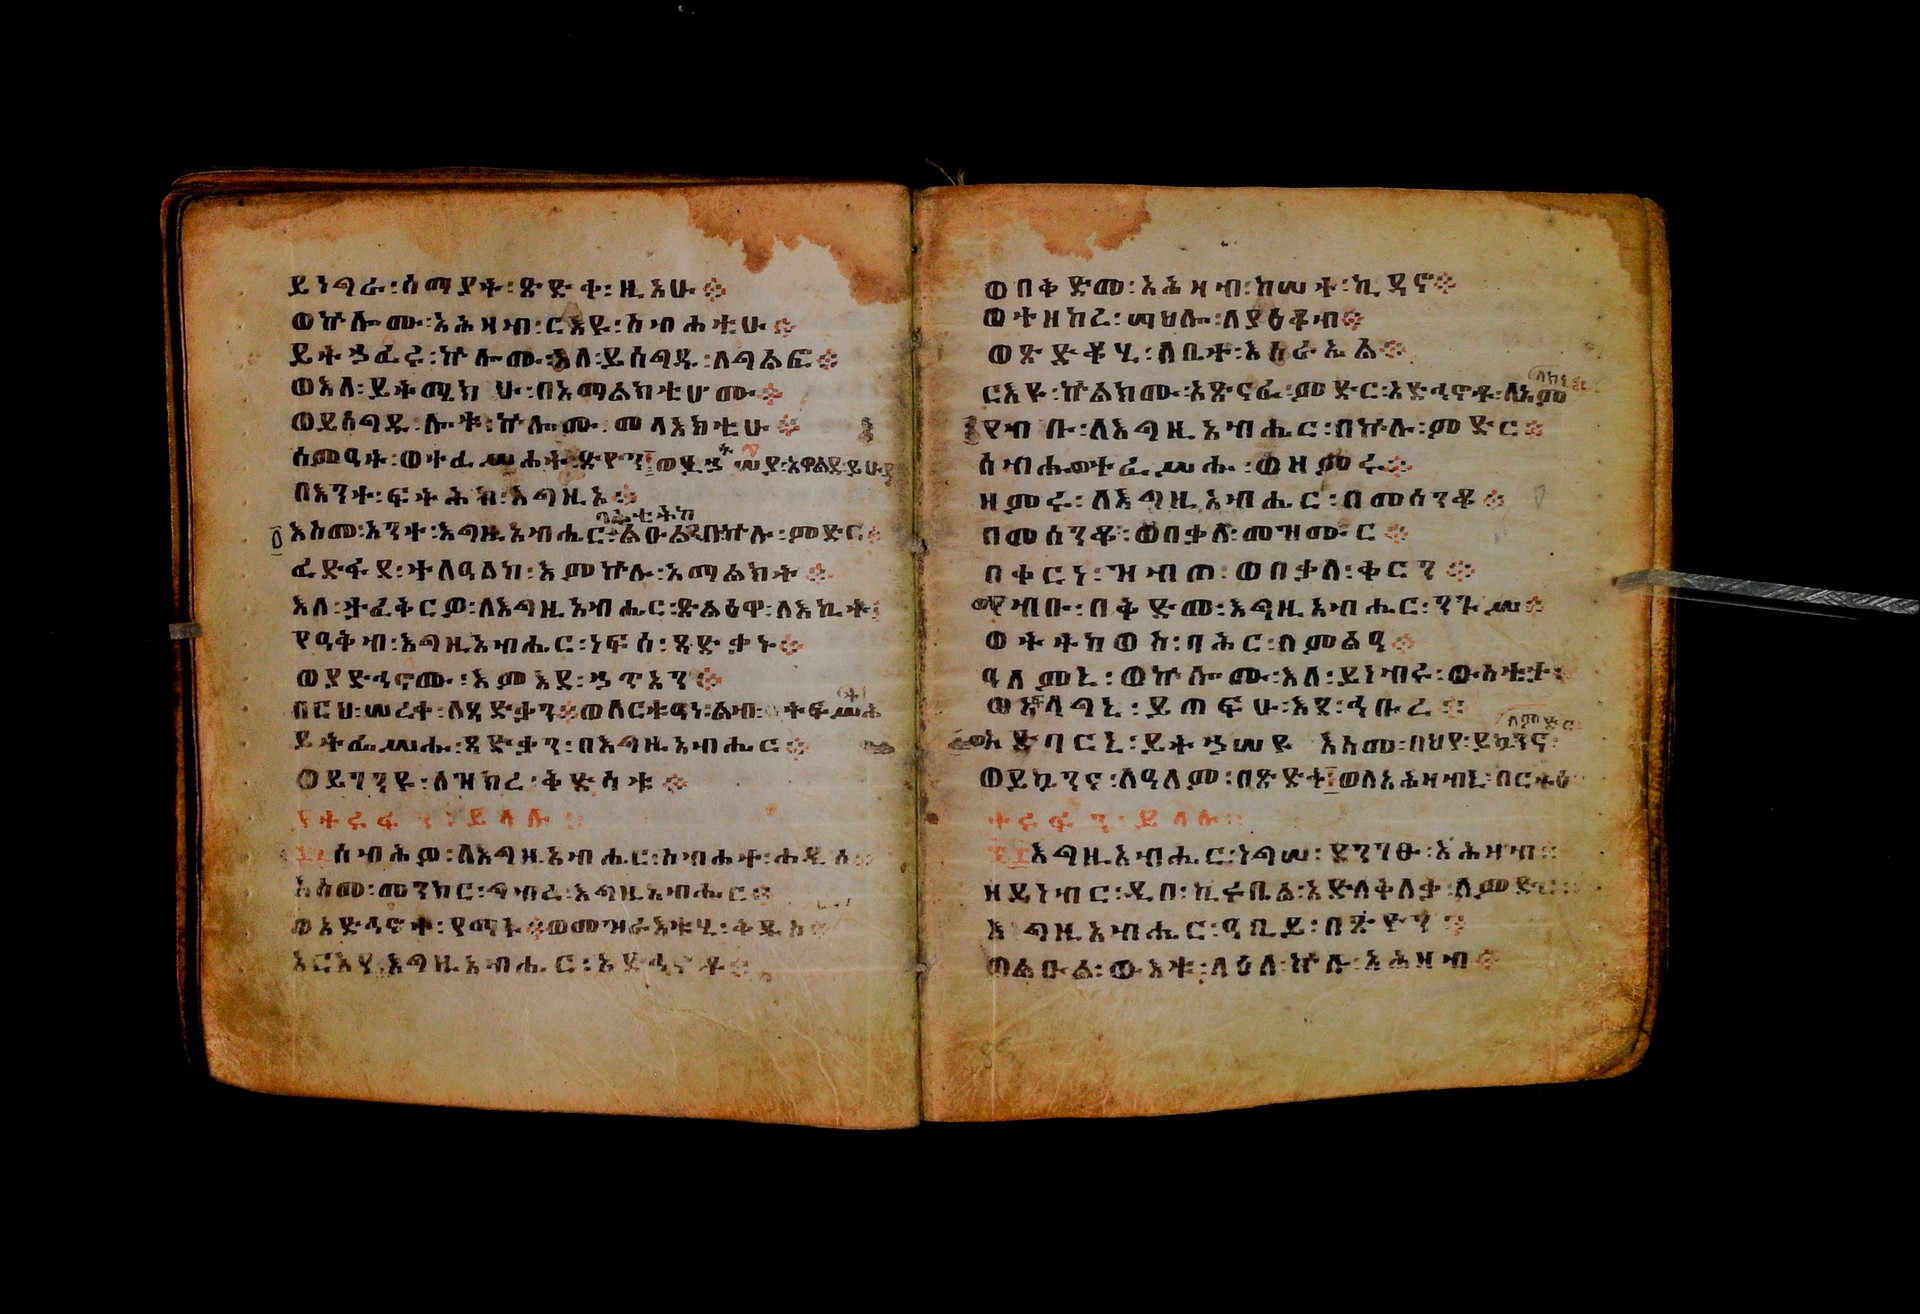 ይነግራ፡ሰማያት፡ጽድቀ፡ዚአሁ።
ወኵሎሙ፡አሕዛብ፡ርእዩ፡ስብሐቲሁ።
ይትኃፈሩ፡ኵሎሙ፡እለ፡ይሰግዱ፡ለግልፎ።
ወእለ፡ይትሜክሁ፡በአማልክቲሆሙ።
ወይሰግዱ፡ሎቱ፡ኵሎሙ፡መላእክቲሁ።
ሰምዓት፡ወተፈሥሐት፡ጽዮን።ወተኃሥያ፡አዋልደ፡ይሁዳ
በእንተ፡ፍትሕከ፡እግዚኦ።
ባሕቲትከ
እስመ፡አንተ፡እግዚአብሔር፡ልዑል፡በኵሉ፡ምድር።
ፈድፋደ፡ተለዓልከ፡እምኵሉ፡አማልክት።
እለ፡ታፈቅርዎ፡ለእግዚአብሔር፡ጽልዕዋ፡ለእኪት፡
የዓቅብ፡እግዚአብሔር፡ነፍሰ፡ጻድቃኑ።
ወያድኅኖሙ፡እምእደ፡ኃጥአን።
በርህ፡ሠረቀ፡ለጻድቃን።ወለርቱዓነ፡ልብ፡ትፍሥሕት
ይትፌሥሑ፡ጻድቃን፡በእግዚአብሔር።
ወይገንዩ፡ለዝክረ፡ቅድሳቱ።
ሰብሕዎ፡ለእግዚአብሔር፡ስብሐተ፡ሐዲሰ።
እስመ፡መንክር፡ግብረ፡እግዚአብሔር።
ወአድኀኖተ፡የማኑ።ወመዝራእቱሂ፡ቅዱስ።
አርአየ፡እግዚአብሔር፡አድኅኖቶ።
ወበቅድመ፡አሕዛብ፡ከሠተ፡ኪዳኖ።
ወተዘከረ፡ሣህሎ፡ለያዕቆብ።
ወጽድቆሂ፡ለቤተ፡እስራኤል።
ርእዩ፡ኵልክሙ፡አጽናፈ፡ምድር፡አድኅኖቶ፡ለአምላክነ
የብቡ፡ለእግዚአብሔር፡በኵሉ፡ምድር።
ሰብሑ፡ወተፈሥሑ፡ወዘምሩ።
ዘምሩ፡ለእግዚአብሔር፡በመሰንቆ።
በመሰንቆ፡ወበቃለ፡መዝሙር።
በቀርነ፡ዝብጦ፡ወበቃለ፡ቀርን።
የብቡ፡በቅድመ፡እግዚአብሔር፡ንጉሥ።
ወትትከወስ፡ባሕር፡በምልዓ።
ዓለምኒ፡ወኵሎሙ፡እለ፡ይነብሩ፡ውስቴታ፡
ወአፍላግኒ፡ይጠፍሁ፡እደ፡ኅቡረ።
አድባርኒ፡ይትኃሠዩ እስመ፡በህየ፡ይኳንኖ፡ለምድር
ወይኳንኖ፡ለዓለም፡በጽድቅ።ወለአሕዛብኒ፡በርትዕ
እግዚአብሔር፡ነግሠ፡ደንገፁ፡አሕዛብ።
ዘይነብር፡ዲበ፡ኪሩቤል፡አድለቅለቃ፡ለምድር።
እግዚአብሔር፡ዓቢይ፡በጽዮን።
ወልዑል፡ውእቱ፡ላዕለ፡ኵሉ፡አሕዛብ።